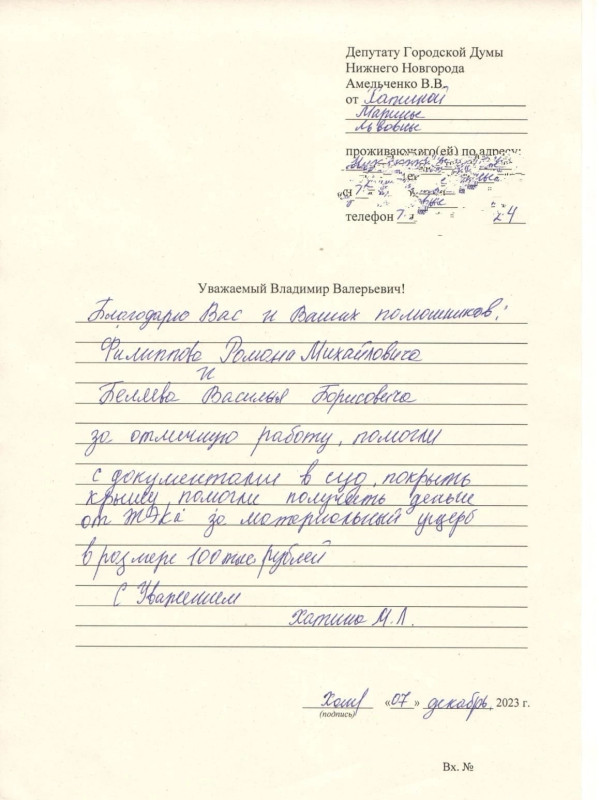 Депутату Городской Думы
Нижнего Новгорода
Амельченко В.В.
от Хатиной
Марины
Львовны
проживающего(ей) по адресу:
телефон
Уважаемый Владимир Валерьевич!
Благодарю Вас и Ваших помошников:
Филиппова Романа Михайловича
и
Беляева Василья Борисовича
за отличную работу, помогли
с документами в суд, покрыть
крышу, помогли получить деньги
от ЖЭКа за материальный ущерб
в размере 100 тыс, рублей
С Уважением
Хатина М.Л.
«07» декабрь 2023 г.
(подпись)
Вх. №